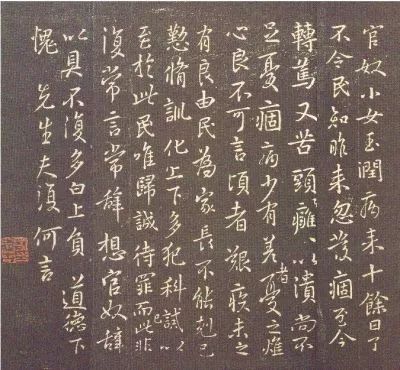 官奴小女玉潤病来十餘日了
不令民知昨来忽發痼至今
轉篤又苦頭癰、、以潰尚不
足憂痼病少有差者憂之燋
心良不可言頃者艱疾未之
有良由民為家長不能剋己
懃脩訓化上下多犯科誡以
至於此民唯歸誠待罪而已此非
復常言常辭想官奴辭
以具不復多白上負 道德下
愧 先生夫復何言